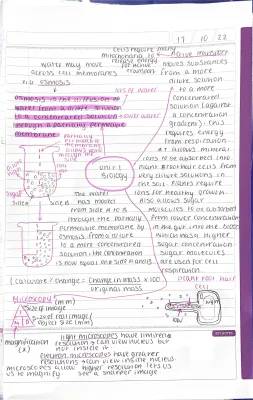 17 . 10 . 22
cells require many
mitochondria to
release energy
for active
transport
water may move
across cell membranes
via osmosis
osmosis is the diffusion of
water from a dilute solution
to a concentrated solution
through a partially permeable
membrane
partially
permeable
membrane
allows
through
Unit 1
Biology
Active transport
moves substances
from a more
dilute solution
to a more
concentrated
solution (against
a concentration
gradient). This
requires energy
from respiration
It allows mineral
ions to be absorbed into
plant root hair cells from
very dilute solutions in
the soil. Plants require
ions for healthy growth.
also allows sugar
molecules to be absorbed
from lower concentration
in the gut into the
which has a higher
sugar concentration
sugar molecules
are used for cell
respiration.
sugar
side A
side B
the water
has moved
from side A to B
through the partially
permeable membrane by
osmosis from a dilute
to a more concentrated
solution. The concentration
is now equal on side A and B
% change = Change in mass x 100
original mass
plant root hair
cell
Microscopy (mm)
size of image
size of real image/
object size (mm)
magnification
(x)
light microscopes have limited
resolution + can view nucleus but
not inside it
electron microscopes have greater
resolution + can view inside nucleus
microscopes allow
us to magnify
higher resolution lets us
see a smaller image